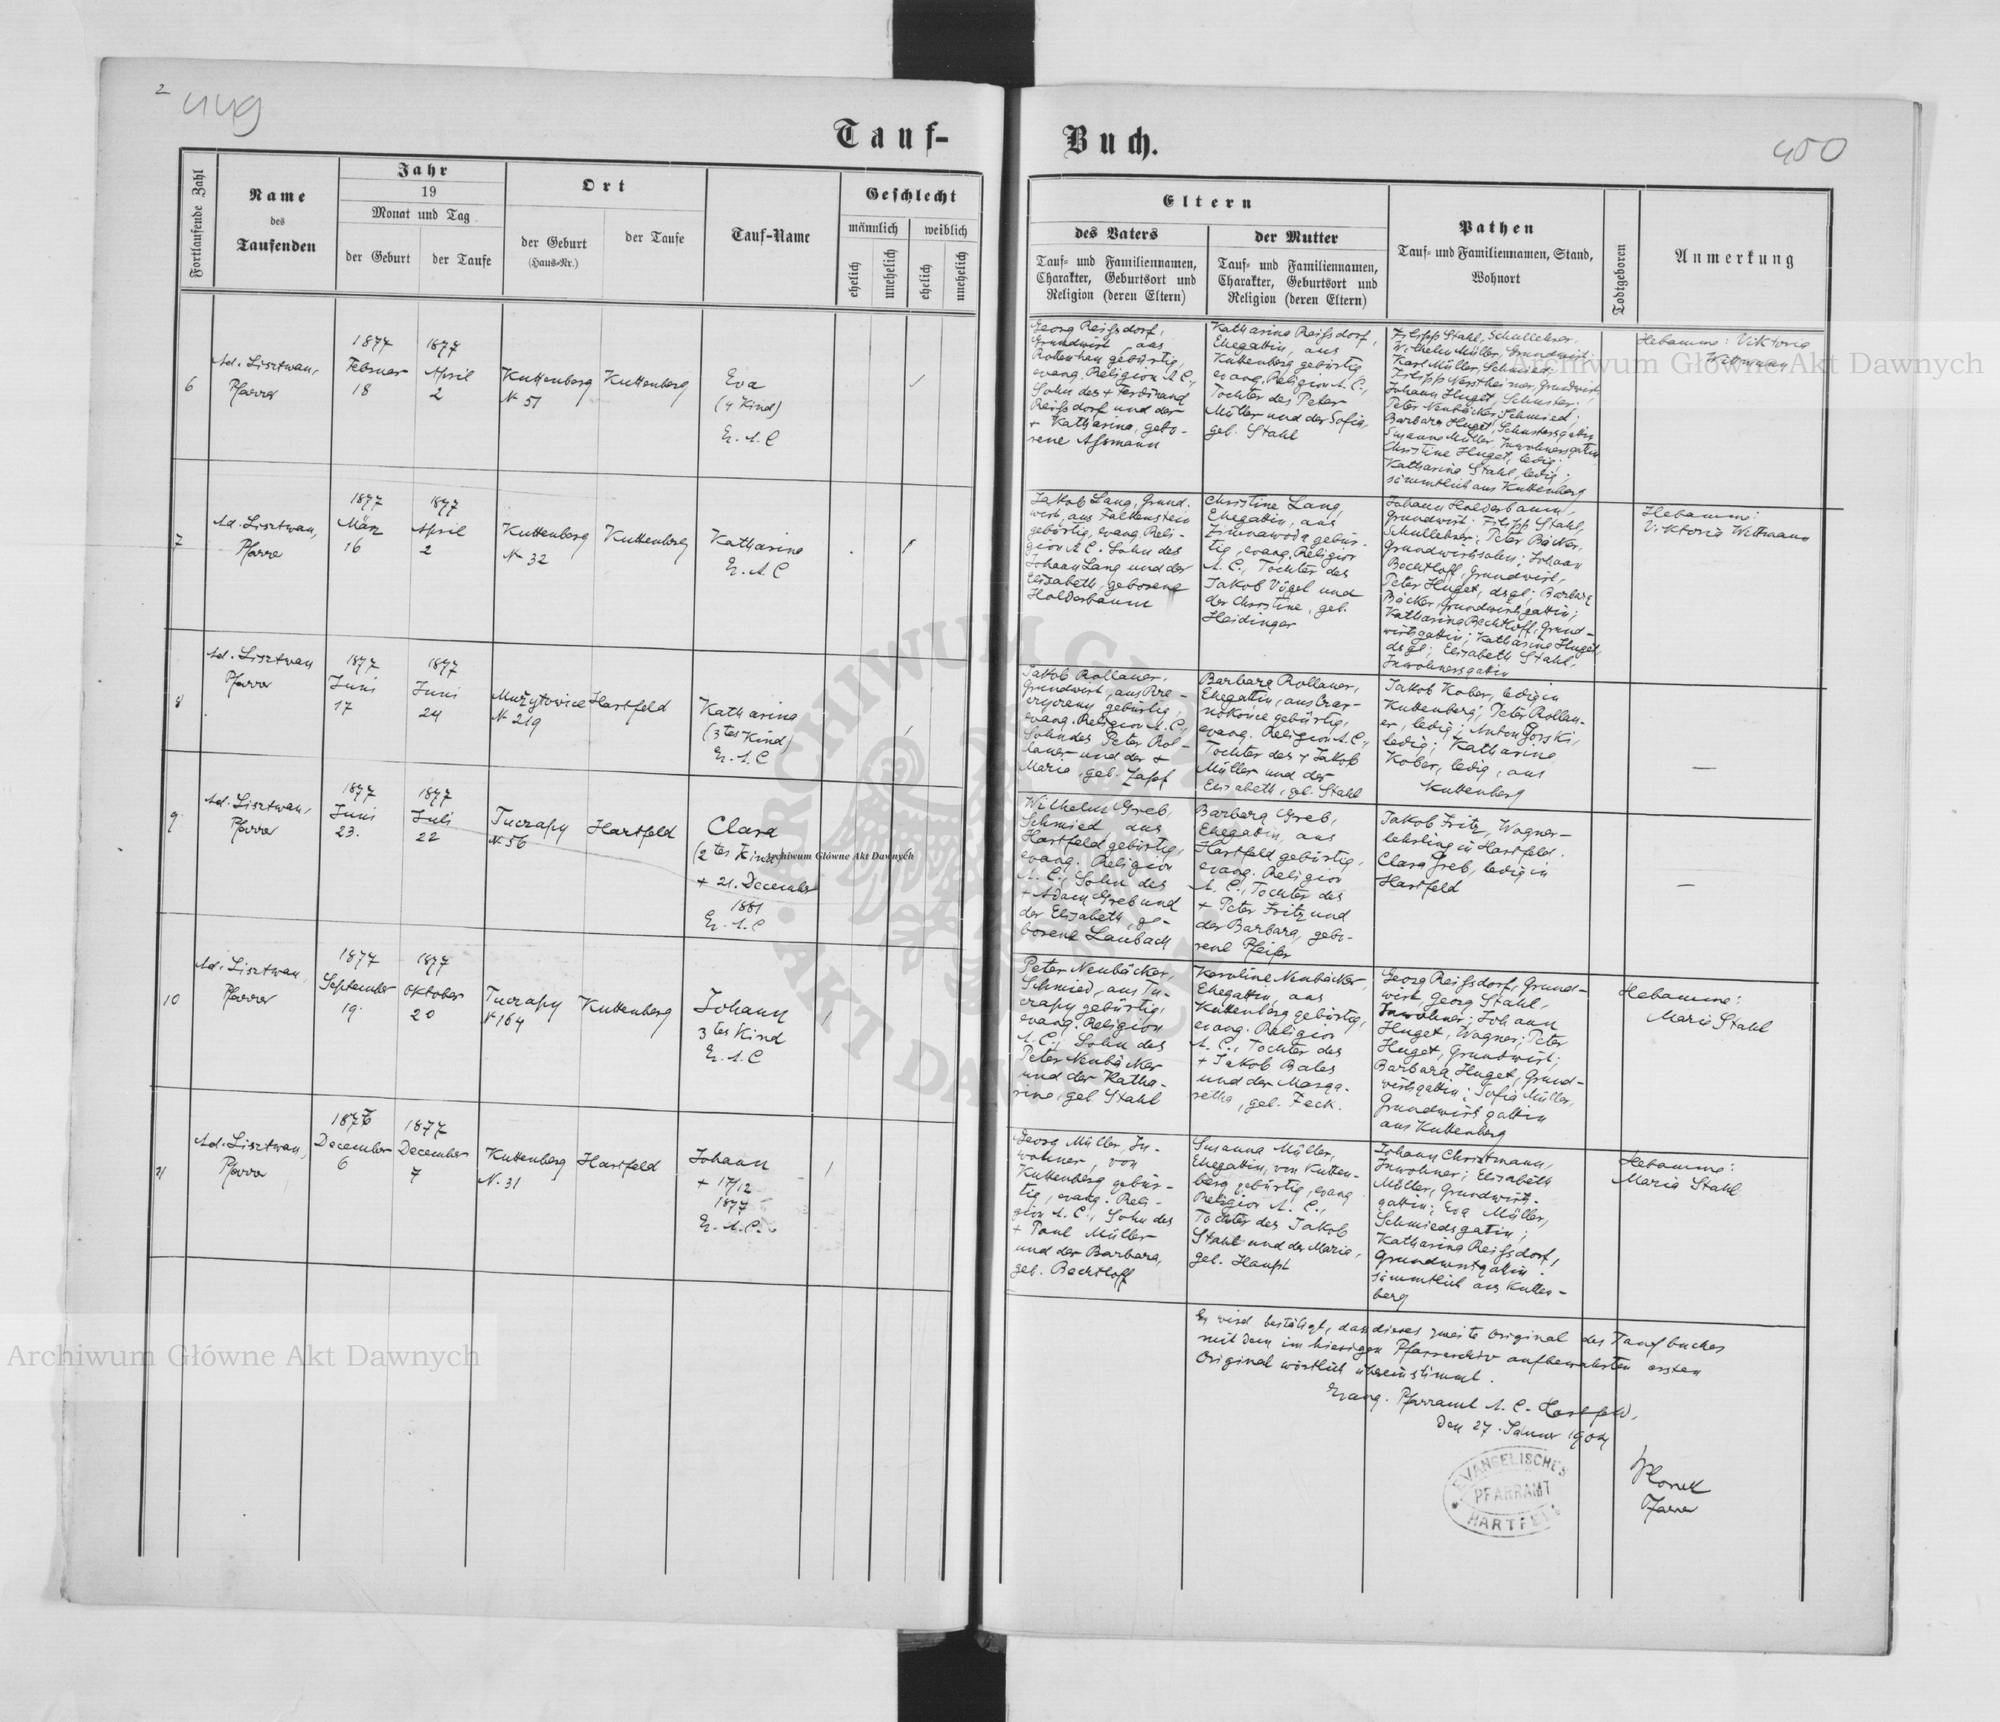 2
449
Tauf-
Buch.
450
Fortlaufende Zahl
Name
des
Taufenden
Jahr
19
Monat und Tag
der Geburt
der Taufe
Ort
der Geburt
(Haus-Nr.)
der Taufe
Tauf-Name
Geschlecht
männlich
weiblich
ehelich
unehelich
ehelich
unehelich
Eltern
des Vaters
Tauf- und Familiennamen,
Charakter, Geburtsort und
Religion (deren Eltern)
der Mutter
Tauf- und Familiennamen,
Charakter, Geburtsort und
Religion (deren Eltern)
Pathen
Tauf- und Familiennamen, Stand,
Wohnort
Todtgeboren
Anmerkung
6
Ad. Lisztwan,
Pfarrer
1877
Februar
18
1877
April
2
Kuttenberg
N 51
Kuttenberg
Eva
(4 Kind)
Ev. A. C
Georg Reifsdorf,
Grundwirt, aus
Rottenhan gebürtig,
evang. Religion A. C.,
Sohn des + Ferdinand
Reifsdorf und der
+ Katharina, gebo-
rene Assmann
Katharina Reifsdorf,
Ehegattin, aus
Kuttenberg gebürtig
evang. Religion A. C.,
Tochter des Peter
Müller und der Sofia,
geb. Stahl
Filipp Stahl, Schullehrer,
Wilhelm Müller, Grundwirt;
Karl Müller, Schmied;
Filipp Nerstheimer, Grundwirt,
Johann Huget, Schuster;
Peter Neubäcker, Schmied;
Barbara Huget, Schustersgattin
Susanna Müller, Inwohnersgattin,
Christine Huget, ledig;
Katharina Stahl, ledig;
sämmtlich aus Kuttenberg
Hebamme: Viktoria
Wittmann
7
Ad. Lisztwan,
Pfarrer
1877
März
16
1877
April
2
Kuttenberg
N 32
Kuttenberg
Katharina
Ev. A. C
Jakob Lang, Grund-
wirt, aus Falkenstein
gebürtig, evang. Reli-
gion A. C. Sohn des
Johann Lang und der
Elisabeth, geborene
Holderbaum
Christine Lang,
Ehegattin, aus
Zimnawoda gebür-
tig, evang. Religion
A. C., Tochter des
Jakob Vögel und
der Christine, geb.
Heidinger
Johann Holderbaum,
Grundwirt; Filipp Stahl,
Schullehrer; Peter Bäcker,
Grundwirtssohn; Johann
Bechtloff, Grundwirt,
Peter Huget, dsgl; Barbara
Bäcker, Grundwirtsgattin;
Katharina Bechtloff, Grund-
wirtsgattin; Katharina Huget,
dsgl; Elisabeth Stahl,
Inwohnersgattin
Hebamme:
Viktoria Wittmann
8
Ad. Lisztwan
Pfarrer
1877
Juni
17
1877
Juni
24
Mužytowice
N 219
Hartfeld
Katharina
(3 tes Kind)
Ev. A. C
Jakob Rollauer,
Grundwirt, aus
gebürtig,
evang. Religion A. C.,
Sohn des Peter Rol-
lauer und der +
Maria, geb. Zapf
Barbara Rollauer,
Ehegattin, aus Czar-
nokońce gebürtig,
evang. Religion A. C.,
Tochter des + Jakob
Müller und der
Elisabeth, geb. Stahl
Jakob Kober, ledig in
Kuttenberg; Peter Rollau-
er, ledig; Anton Gorski,
ledig; Katharina
Kober, ledig, aus
Kuttenberg
9
Ad. Lisztwan,
Pfarrer
1877
Juni
23.
1877
Juli
22
Tuczapy
N. 56
Hartfeld
Clara
(2 tes Kind)
+ 21. December
1881
Ev. A. C
Wilhelm Greb,
Schmied, aus
Hartfeld gebürtig,
evang. Religion
A. C., Sohn des
+ Adam Greb und
der Elisabeth, ge-
borene Laubach
Barbara Greb,
Ehegattin, aus
Hartfeld gebürtig,
evang. Religion
A. C., Tochter des
+ Peter Fritz und
der Barbara, gebo-
rene Pfeifer
Jakob Fritz, Wagner-
lehrling in Hartfeld.
Clara Greb, ledig in
Hartfeld
10
Ad. Lisztwan,
Pfarrer
1877
September
19.
1877
Oktober
20
Tuczapy
N 164
Kuttenberg
Johann
3 tes Kind
Ev. A. C
Peter Neubäcker,
Schmied, aus Tu-
czapy gebürtig,
evang. Religion
A. C., Sohn des
Peter Neubäcker
und der Katha-
rina, geb Stahl
Karoline Neubäcker,
Ehegattin, aus
Kuttenberg gebürtig,
evang. Religion
A. C., Tochter des
+ Jakob Bales
und der Marga-
retha, geb. Feck.
Georg Reifsdorf, Grund-
wirt, Georg Stahl,
Inwohner; Johann
Huget, Wagner; Peter
Huget, Grundwirt;
Barbara Huget, Grund-
wirtsgattin; Sofia Müller,
Grundwirtsgattin
aus Kuttenberg
Hebamme:
Maria Stahl
11
Ad. Lisztwan,
Pfarrer
1877
December
6
1877
December
7
Kuttenberg
N. 31
Hartfeld
Johann
+ 17/12
1877
Ev. A. C.
Georg Müller, In-
wohner, von
Kuttenberg gebür-
tig, evang. Reli-
gion A. C., Sohn des
+ Paul Müller
und der Barbara,
geb. Bechtloff
Susanna Müller,
Ehegattin, von Kutten-
berg gebürtig, evang
Religion A. C.,
Tochter des Jakob
Stahl und der Maria,
geb. Haupt
Johann Christmann,
Inwohner; Elisabeth
Müller, Grundwirts-
gattin; Eva Müller,
Schmiedsgattin;
Katharina Reifsdorf,
Grundwirtsgattin
sämmtlich aus Kutten-
berg
Hebamme:
Maria Stahl
Es wird bestätigt, dass dieses zweite Original des Taufbuches
mit dem im hiesigen Pfarrarchiv aufbewahrten ersten
Original wörtlich übereinstimmt.
Evang. Pfarramt A. C. Hartfeld,
den 27. Jänner 1904
EVANGELISCHES
PFARRAMT
HARTFELD
Pfarrer
Archiwum Główne Akt Dawnych
Archiwum Główne Akt Dawnych
Archiwum Główne Akt Dawnych
ARCHIWUM GŁÓWNE AKT DAWNYCH